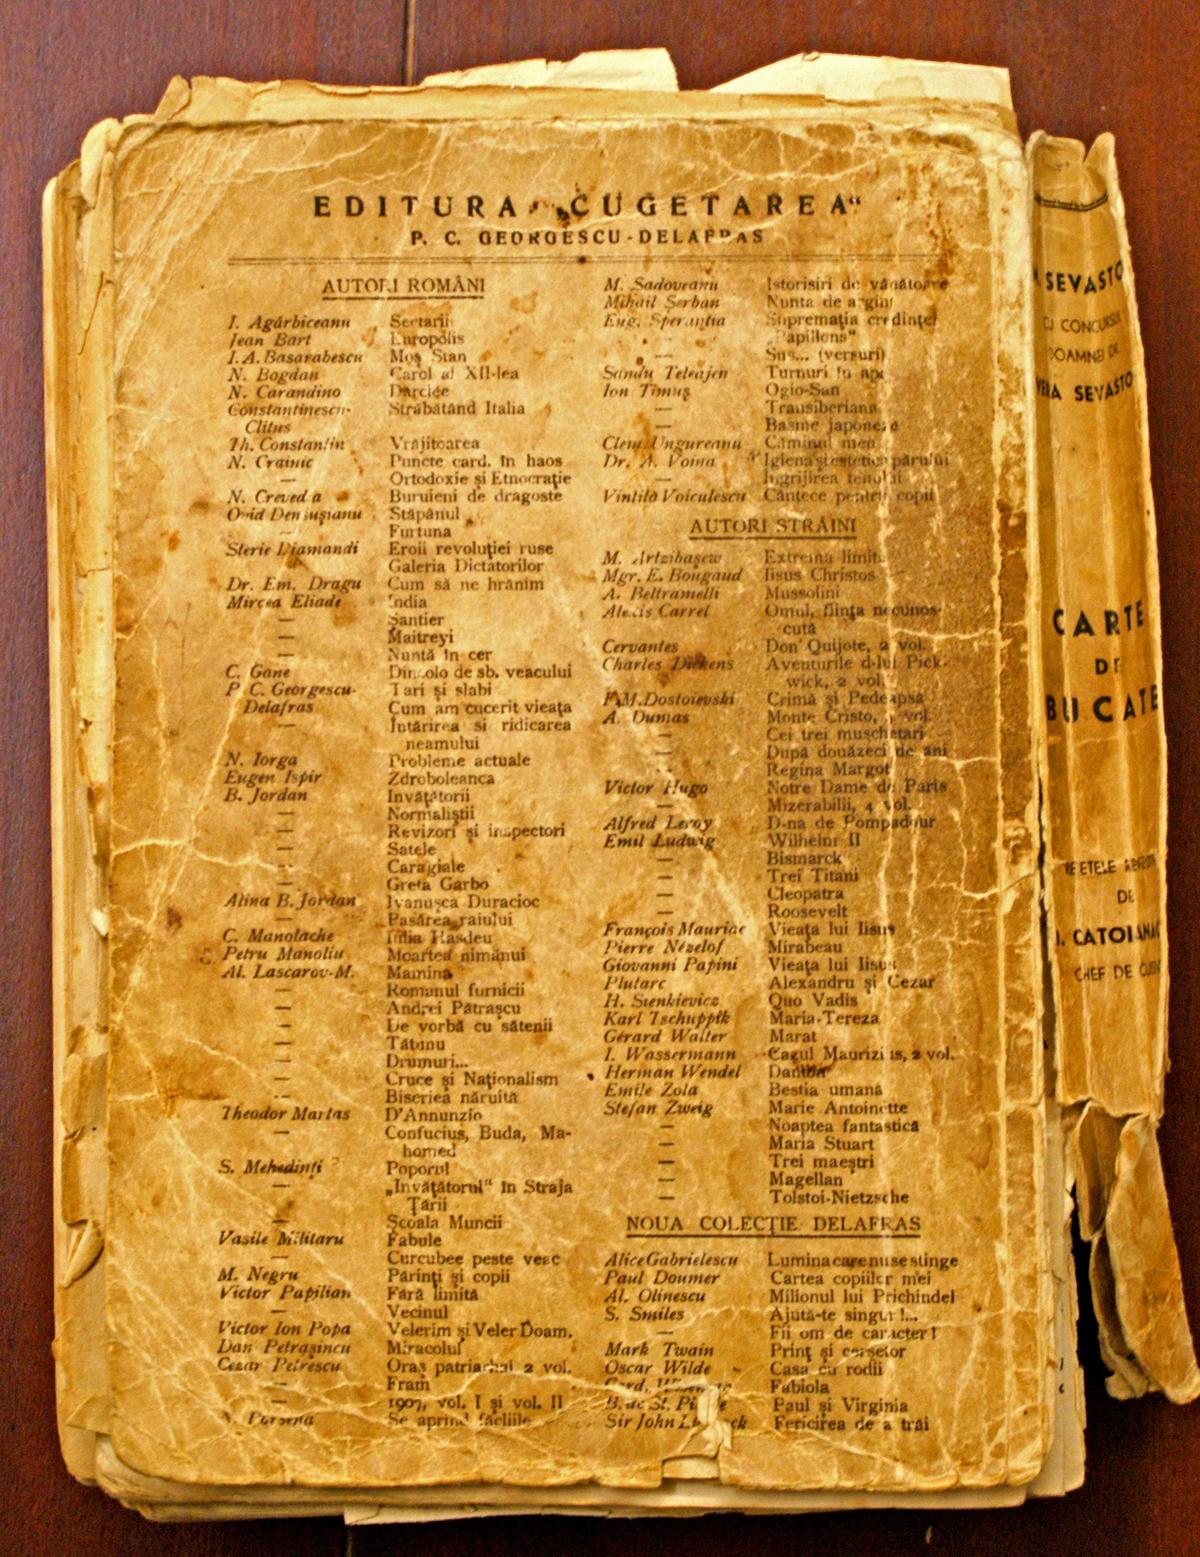 EDITURA „CUGETAREA“
P. C. GEORGESCU-DELAFRAS
AUTORI ROMÂNI
I. Agârbiceanu Sectarii
Jean Bart Europolis
I. A. Basarabescu Moş Stan
N. Bogdan Carol al XII-lea
N. Carandino Darclée
Constantinescu- Străbătând Italia
Clitus
Th. Constantin Vrăjitoarea
N. Crainic Puncte card. în haos
— Ortodoxie şi Etnocraţie
N. Creveda Buruieni de dragoste
Ovid Densuşianu Stăpânul
— Furtuna
Sterie Diamandi Eroii revoluţiei ruse
Galeria Dictatorilor
Dr. Em. Dragu Cum să ne hrănim
Mircea Eliade India
— Şantier
— Maitreyi
— Nuntă în cer
C. Gane Dincolo de sb. veacului
P. C. Georgescu- Tari şi slabi
Delafras Cum am cucerit vieaţa
— Intărirea si ridicarea
neamului
N. Iorga Probleme actuale
Eugen Ispir Zdroboleanca
B. Jordan Invăţătorii
— Normaliştii
— Revizori şi inspectori
— Satele
— Caragiale
— Greta Garbo
Alina B. Jordan Ivanuşca Duracioc
— Pasărea raiului
C. Manolache Iulia Hasdeu
Petru Manoliu Moartea nimănui
Al. Lascarov-M. Mamina
— Romanul furnicii
— Andrei Pătraşcu
— De vorbă cu sătenii
— Tătunu
— Drumuri...
— Cruce şi Naţionalism
— Biserica năruită
Theodor Martas D'Annunzio
— Confucius, Buda, Ma-
homed
S. Mehedinţi Poporul
— „Invăţătorul“ în Straja
Ţării
— Şcoala Muncii
Vasile Militaru Fabule
— Curcubee peste veac
M. Negru Părinţi şi copii
Victor Papilian Fără limită
— Vecinul
Victor Ion Popa Velerim şi Veler Doam.
Dan Petraşincu Miracolul
Cezar Petrescu Oraş patriarhal 2 vol.
— Fram
— 1907, vol. I şi vol. II
Se aprind făcliile
M. Sadoveanu Istorisiri de vânătoare
Mihail Şerban Nunta de argint
Eug. Sperantia Supremaţia credinţei
— „Papillons“
— Sus... (versuri)
Sandu Teleajen Turnuri în apă
Ion Timuş Ogio-San
— Transiberiana
— Basme japoneze
Clem. Ungureanu Căminul meu
Dr. A. Voina Igiena şi estetica părului
Ingrijirea tenului
Vintilă Voiculescu Cântece pentru copii
AUTORI STRĂINI
M. Artzibaşew Extrema limită
Mgr. E. Bougaud Iisus Christos
A. Beltramelli Mussolini
Alexis Carrel Omul, fiinţa necunos-
cută
Cervantes Don Quijote, 2 vol.
Charles Dickens Aventurile d-lui Pick-
wick, 2 vol.
F. M. Dostoievski Crimă şi Pedeapsă
A. Dumas Monte Cristo, vol.
— Cei trei muşchetari
— După douăzeci de ani
Regina Margot
Victor Hugo Notre Dame de Paris
— Mizerabilii, 4 vol.
Alfred Leroy D-na de Pompadour
Emil Ludwig Wilhelm II
— Bismarck
— Trei Titani
— Cleopatra
— Roosevelt
François Mauriac Vieaţa lui Iisus
Pierre Nézelof Mirabeau
Giovanni Papini Vieaţa lui Iisus
Plutarc Alexandru şi Cezar
H. Sienkievicz Quo Vadis
Karl Tschuppik Maria-Tereza
Gérard Walter Marat
I. Wassermann Cazul Maurizius, 2 vol.
Herman Wendel Danton
Emile Zola Bestia umană
Stefan Zweig Marie Antoinette
— Noaptea fantastică
— Maria Stuart
— Trei maeştri
— Magellan
— Tolstoi-Nietzsche
NOUA COLECŢIE DELAFRAS
Alice Gabrielescu Lumina care nu se stinge
Paul Doumer Cartea copiilor mei
Al. Olinescu Milionul lui Prichindel
S. Smiles Ajută-te singur!...
— Fii om de caracter!
Mark Twain Prinţ şi cerşetor
Oscar Wilde Casa cu rodii
Card. Fabiola
B. de St. Paul şi Virginia
Sir John Fericirea de a trăi
SEVASTO
CU CONCURSUL
DOAMNEI DE
SEVASTO
CARTE
DE
BUCATE
REŢETELE
DE
I. CATOI
CHEF DE